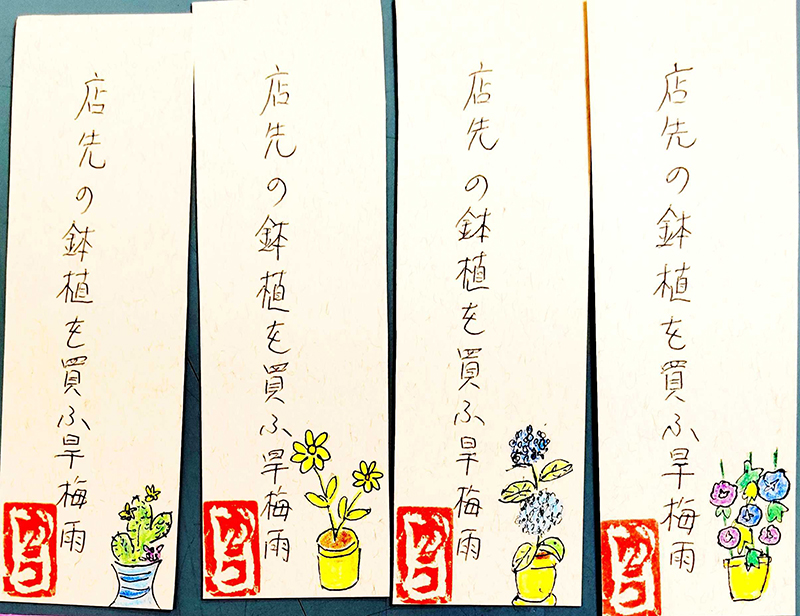 店先の鉢植を買ふ旱梅雨
店先の鉢植を買ふ旱梅雨
店先の鉢植を買ふ旱梅雨
店先の鉢植を買ふ旱梅雨